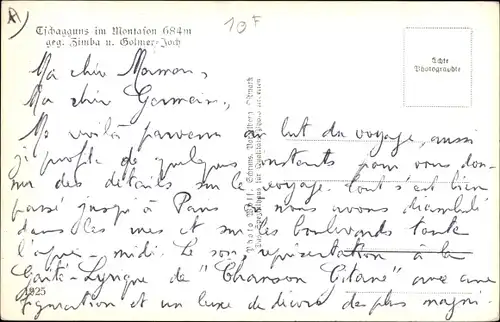 Tschagguns im Montafon 684m
geg. Zimba u. Golmer-Joch
10F
Echte
Photographie
Ma chèr Maman,
Ma chèr Germain,
Me voilà parvenu au but du voyage, aussi
je profite de quelques instants pour vous don-
ner des détails sur le voyage. Tout s'est bien
passé jusqu'à Paris où nous avons déambulé
dans les rues et sur les boulevards toute
l'après-midi. Le soir, représentation à la
Gaîté-Lyrique de "Chanson Gitane" avec une
figuration et un luxe de décors des plus magni-
1925
Photo Wolf, Schruns, Vorarlberg, Österreich